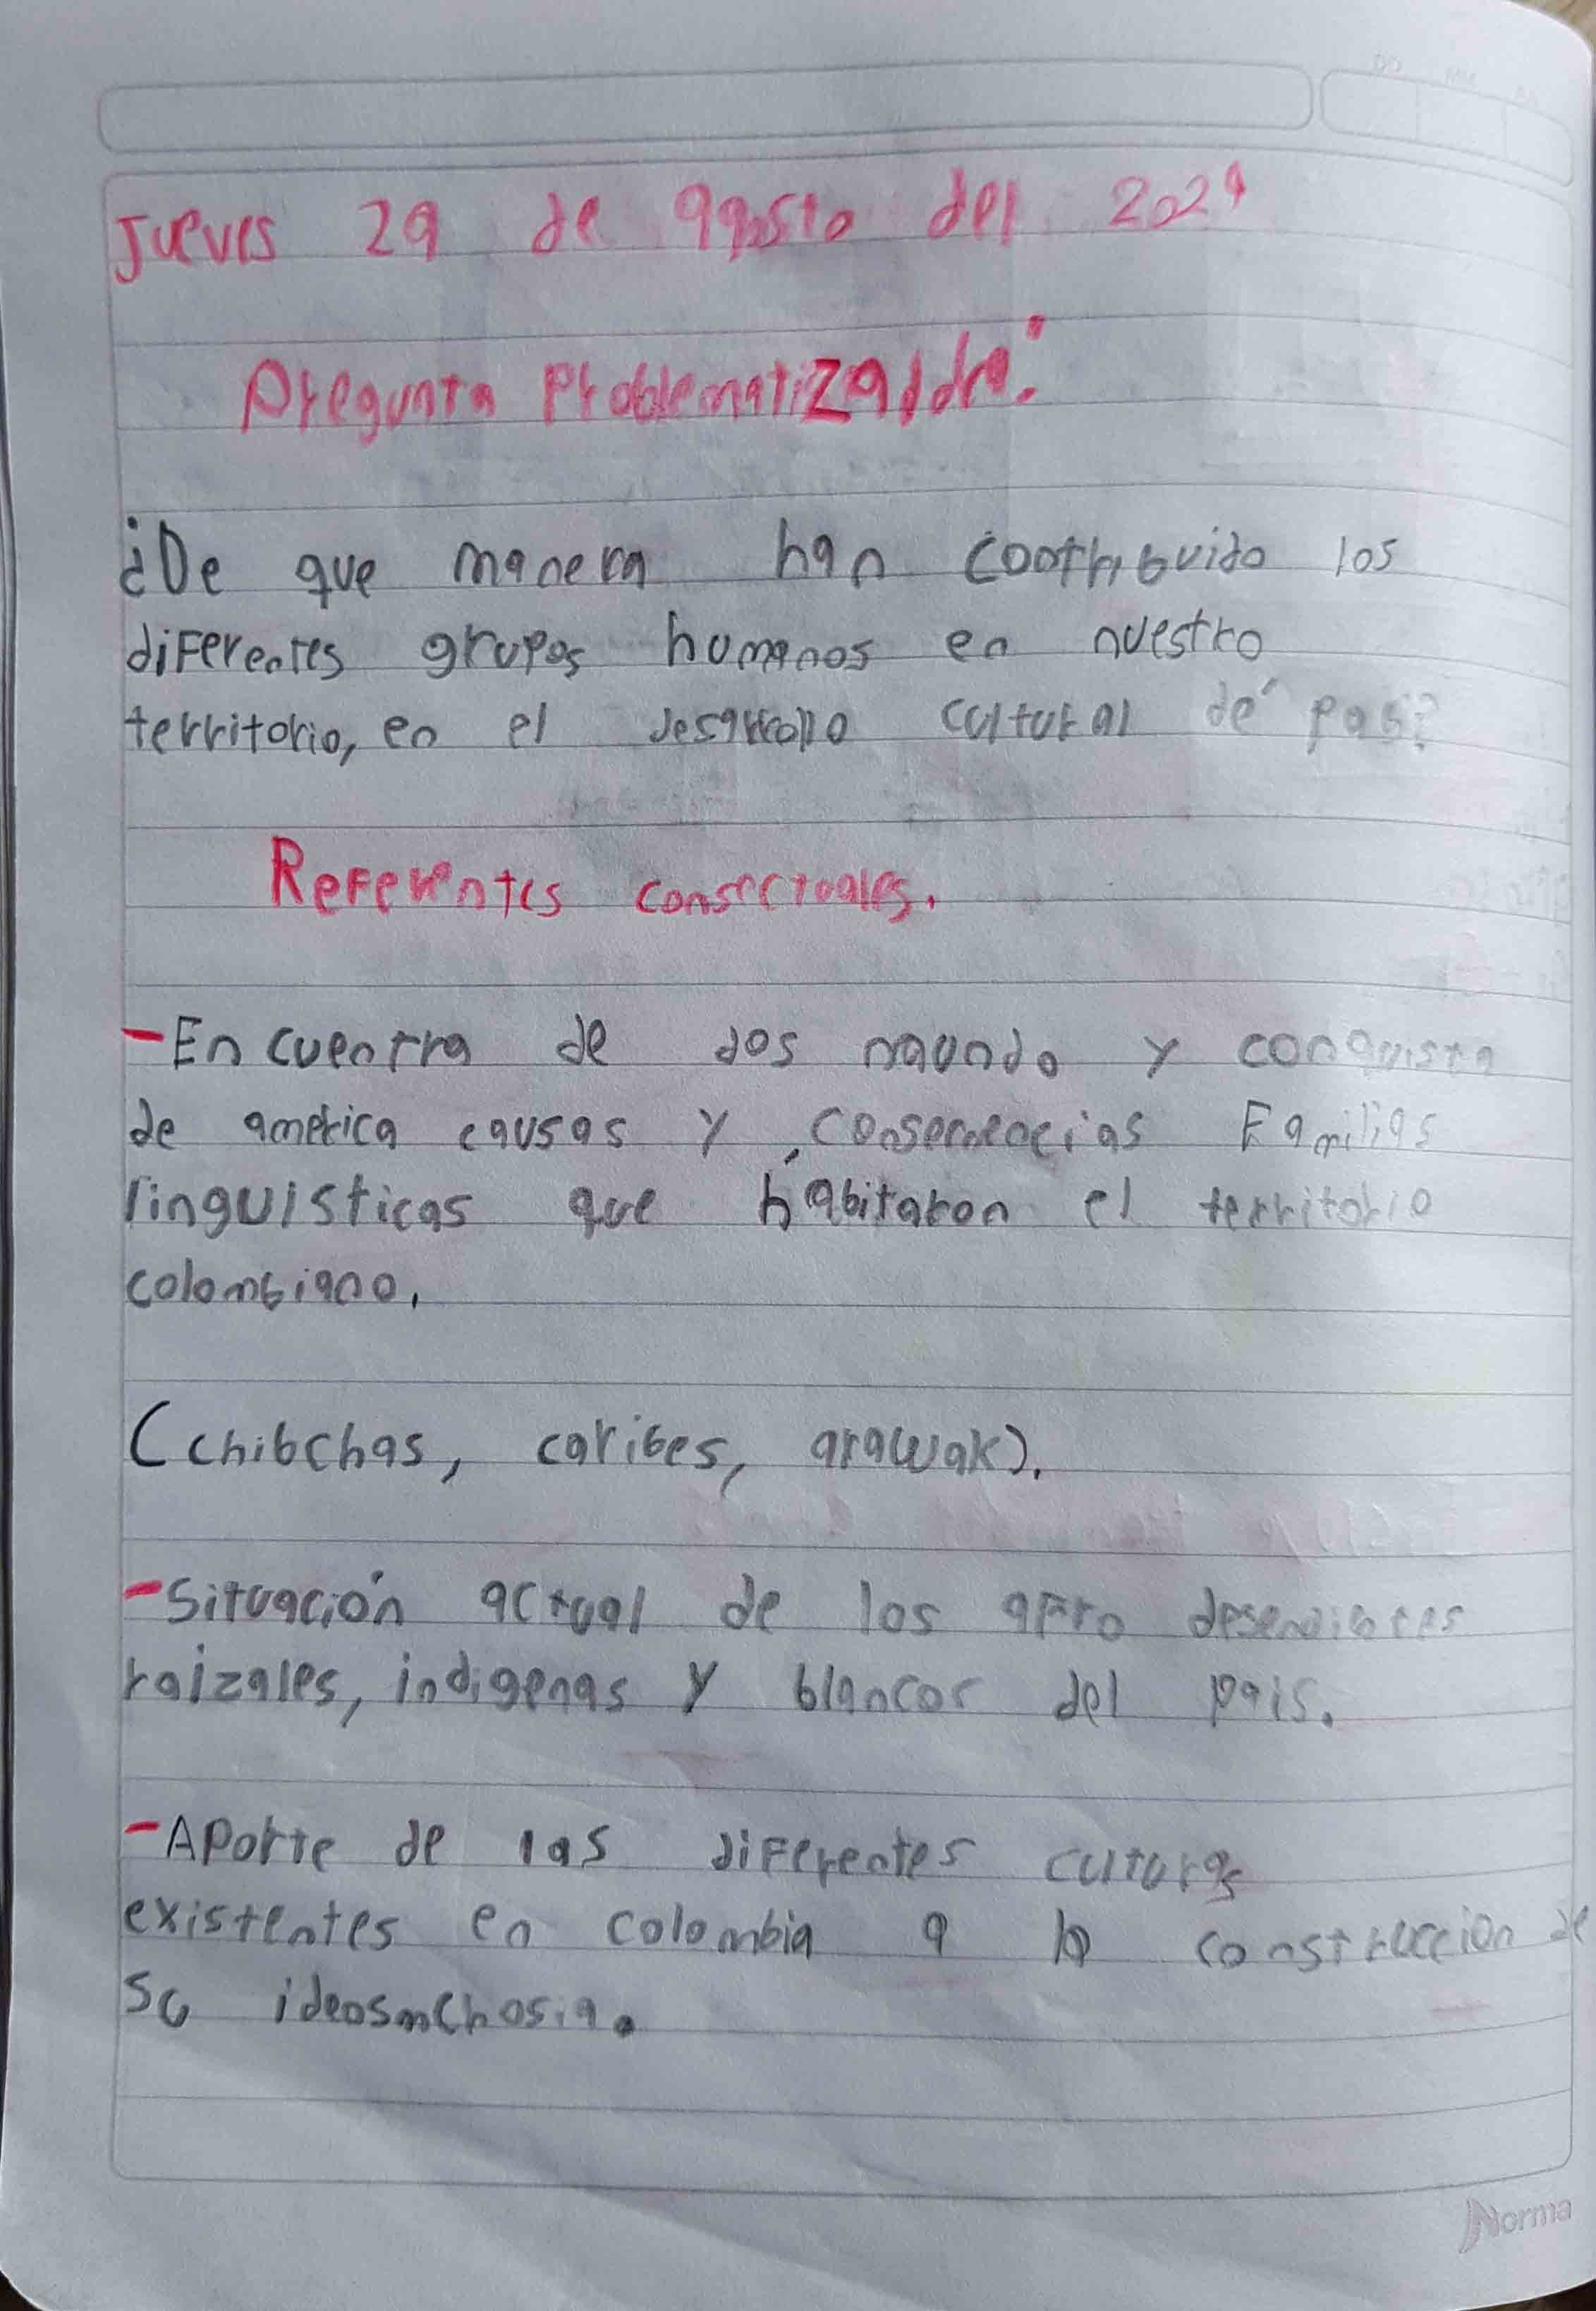 Jueves 29 de agosto del 2024
Pregunta Problematizadora:
¿De que manera han contribuido los
diferentes grupos humanos en nuestro
territorio, en el desarrollo cultural de pais?
Referentes consectuales.
- Encuentra de dos maundo y conquista
de america causas y consecuencias Familias
linguisticas que habitaron el territorio
colombiano.
(chibchas, caribes, arawak).
- Situación actual de los afro desendientes
raizales, indigenas y blancos del pais.
- Aporte de las diferentes culturas
existentes en colombia a la construccion de
su ideosmchosia.
Norma